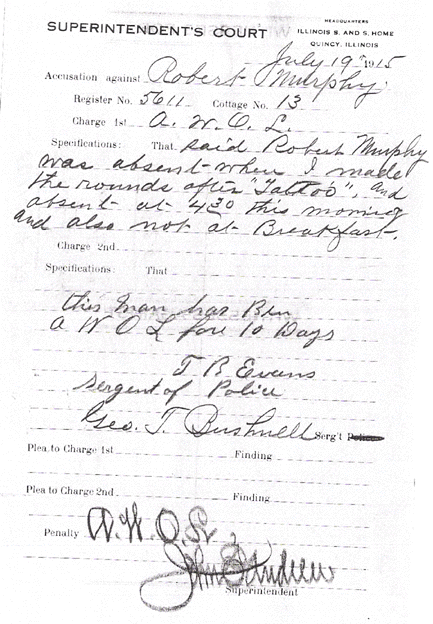 HEADQUARTERS
SUPERINTENDENT'S COURT
ILLINOIS S. AND S. HOME
QUINCY, ILLINOIS
July 19th 1915
Accusation against Robert Murphy
Register No. 5611 Cottage No. 13
Charge 1st A. W. O. L.
Specifications: That said Robert Murphy
was absent when I made
the rounds after "Tattoo", and
absent at 4 30 this morning
and also not at Breakfast.
Charge 2nd
Specifications: That
this man has Ben
A W O L fore 10 Days
T B Evans
Sergent of Police
Geo. T. Bushnell Serg't Police
Plea to Charge 1st Finding
Plea to Charge 2nd Finding
Penalty A. W. O. L.
John E Andrew
Superintendent